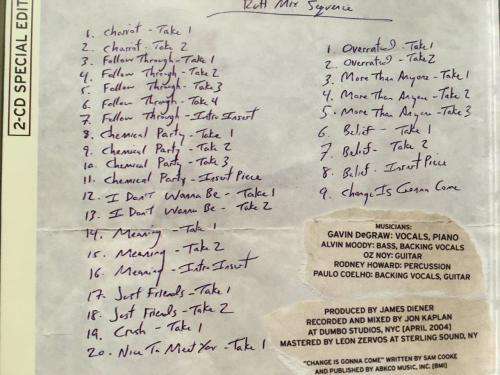 2-CD SPECIAL EDIT
Ruff Mix Sequence
1. Chariot - Take 1
2. Chariot - Take 2
3. Follow Through - Take 1
4. Follow Through - Take 2
5. Follow Through - Take 3
6. Follow Through - Take 4
7. Follow Through - Intro Insert
8. Chemical Party - Take 1
9. Chemical Party - Take 2
10. Chemical Party - Take 3
11. Chemical Party - Insert Piece
12. I Don't Wanna Be - Take 1
13. I Don't Wanna Be - Take 2
14. Meaning - Take 1
15. Meaning - Take 2
16. Meaning - Intro Insert
17. Just Friends - Take 1
18. Just Friends - Take 2
19. Crush - Take 1
20. Nice To Meet You - Take 1
1. Overrated - Take 1
2. Overrated - Take 2
3. More Than Anyone - Take 1
4. More Than Anyone - Take 2
5. More Than Anyone - Take 3
6. Belief - Take 1
7. Belief - Take 2
8. Belief - Insert Piece
9. Change Is Gonna Come
MUSICIANS:
GAVIN DeGRAW: VOCALS, PIANO
ALVIN MOODY: BASS, BACKING VOCALS
OZ NOY: GUITAR
RODNEY HOWARD: PERCUSSION
PAULO COELHO: BACKING VOCALS, GUITAR
PRODUCED BY JAMES DIENER
RECORDED AND MIXED BY JON KAPLAN
AT DUMBO STUDIOS, NYC (APRIL 2004)
MASTERED BY LEON ZERVOS AT STERLING SOUND, NY
"CHANGE IS GONNA COME" WRITTEN BY SAM COOKE
AND PUBLISHED BY ABKCO MUSIC, INC. (BMI)